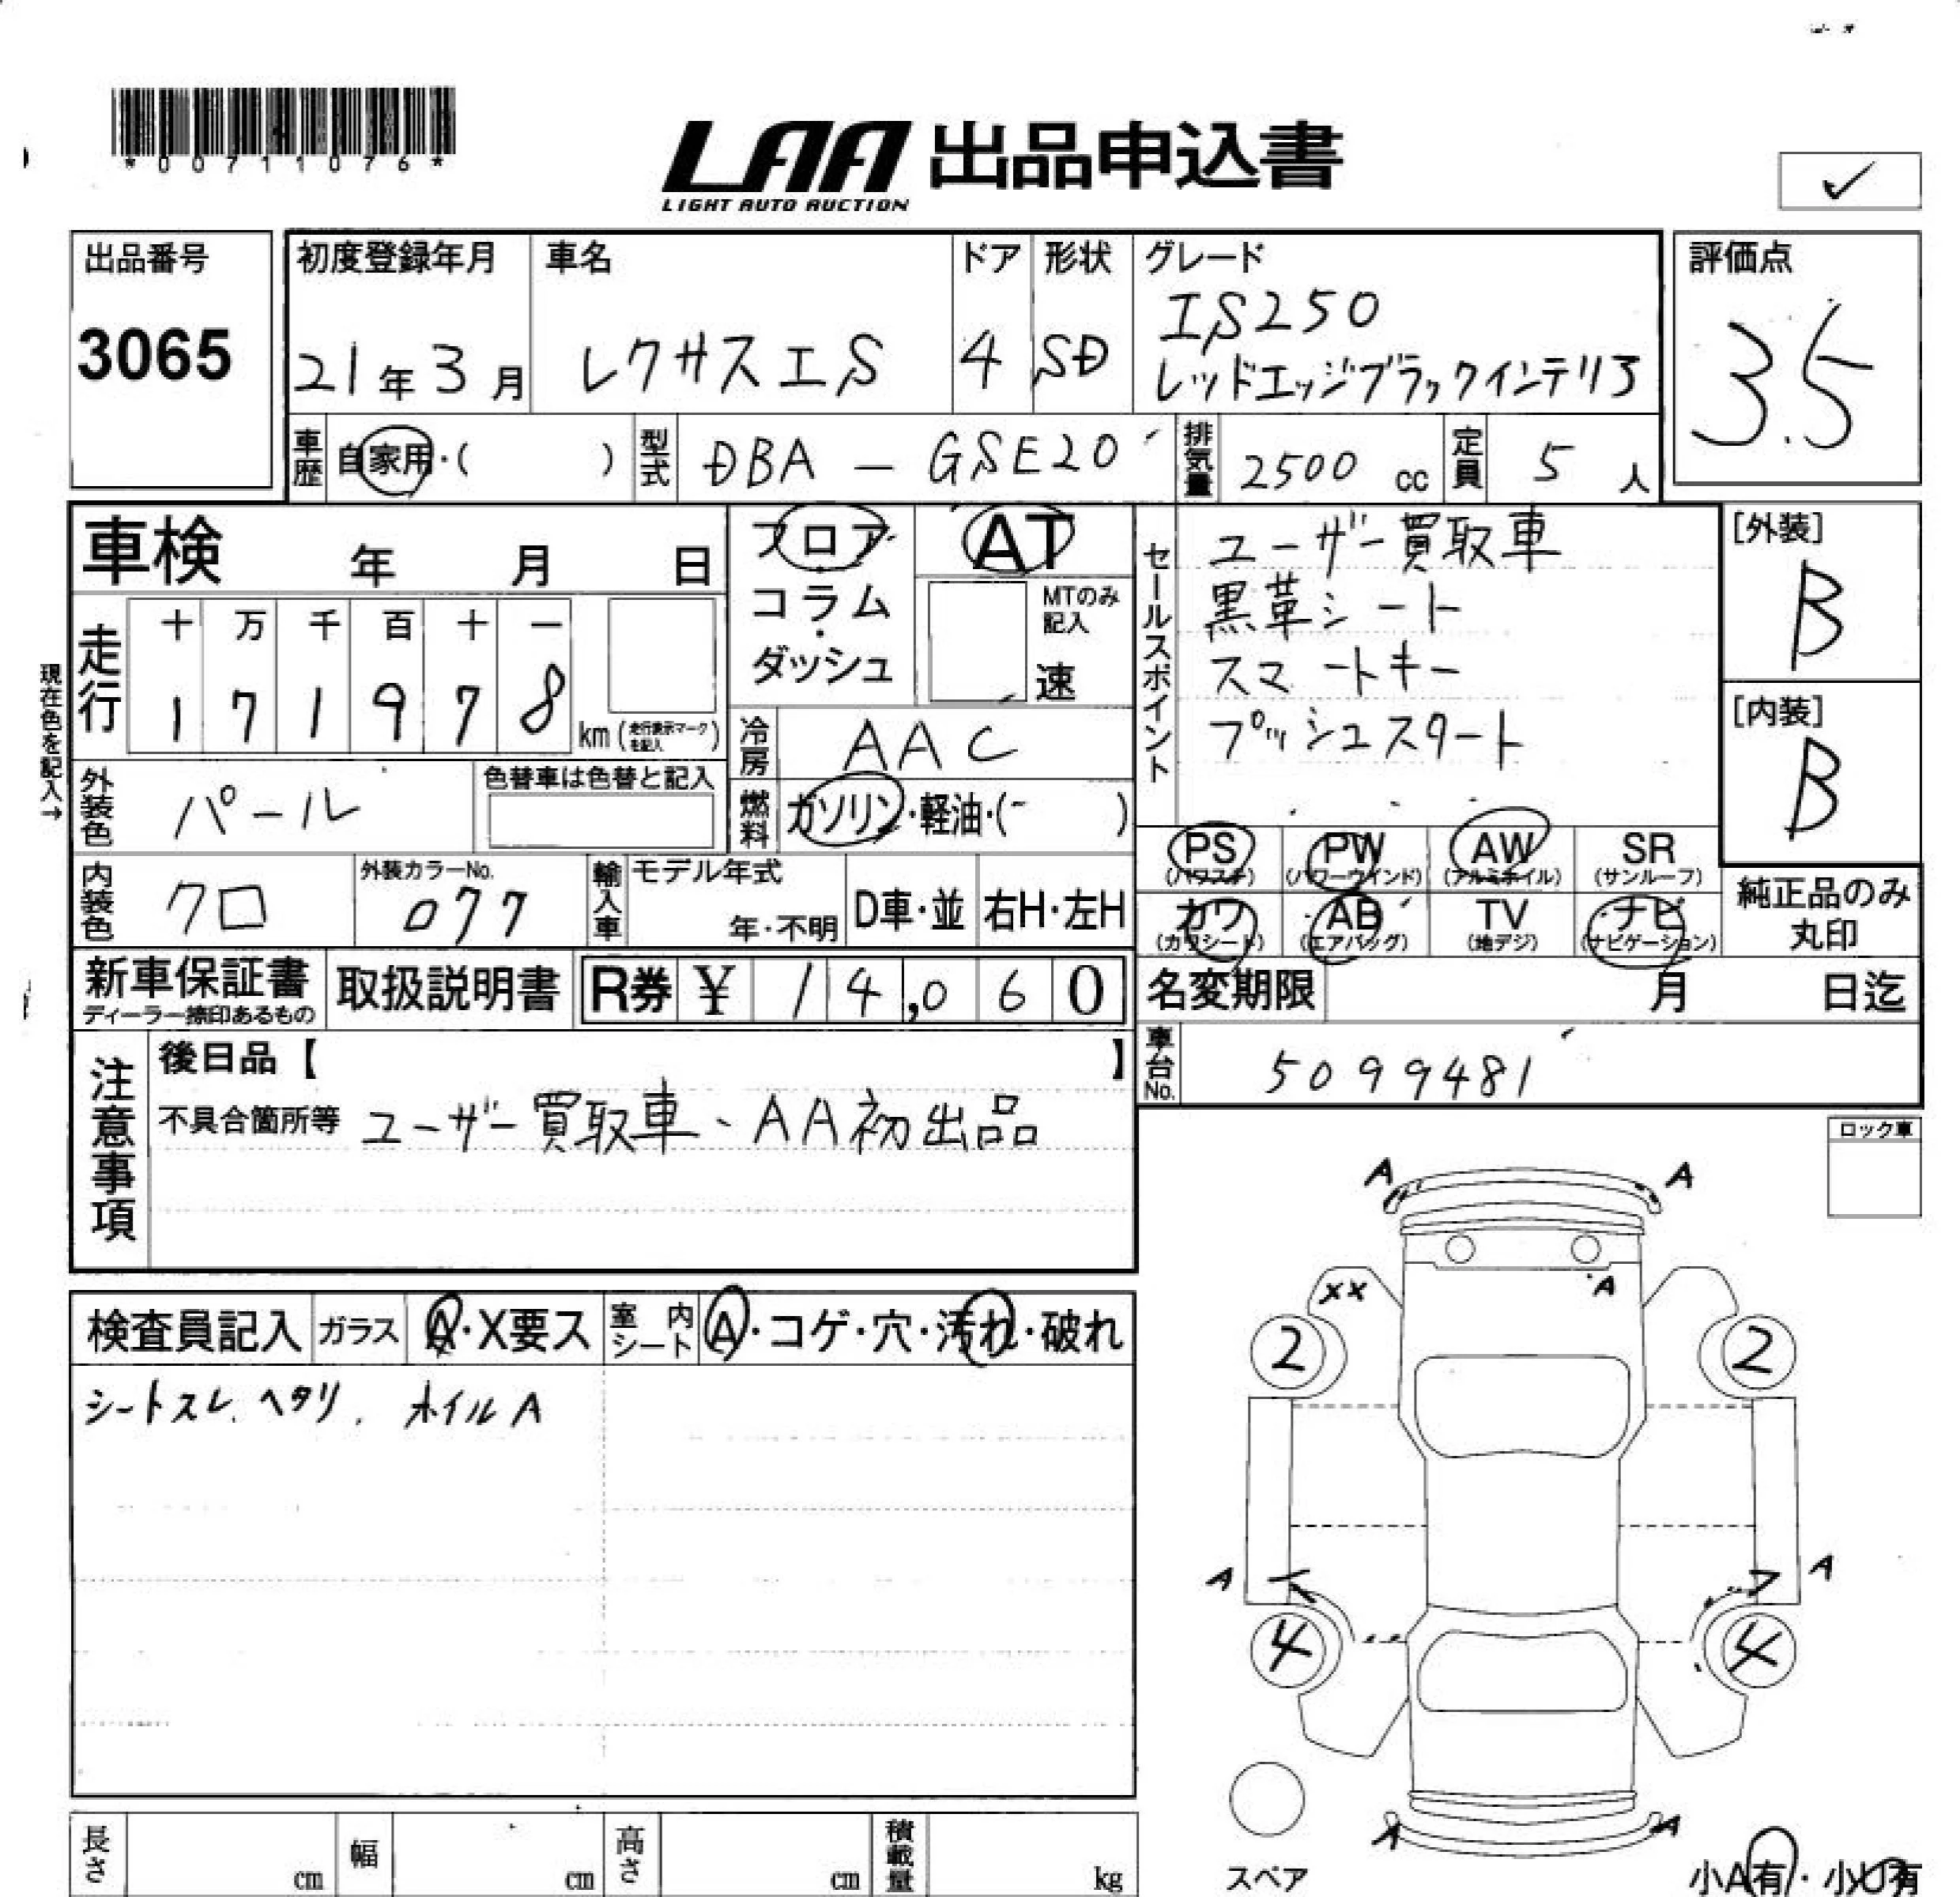 *00711076*
LAA 出品申込書
LIGHT AUTO AUCTION
✓
出品番号
3065
初度登録年月
21年3月
車名
レクサスIS
ドア
4
形状
SD
グレード
IS250
レッドエッジブラックインテリア
評価点
3.5
車歴
自家用・( )
型式
DBA-GSE20
排気量
2500 cc
定員
5 人
車検 年 月 日
フロア・コラム・ダッシュ
AT
MTのみ記入
速
セールスポイント
ユーザー買取車
黒革シート
スマートキー
プッシュスタート
[外装]
B
[内装]
B
現在色を記入→
走行
十 万 千 百 十 一
1 7 1 9 7 8
km (走行表示マークを記入)
冷房
AAC
外装色
パール
色替車は色替と記入
燃料
ガソリン・軽油・( )
PS (パワステ)
PW (パワーウインド)
AW (アルミホイル)
SR (サンルーフ)
カワ (カワシート)
AB (エアバッグ)
TV (地デジ)
ナビ (ナビゲーション)
純正品のみ
丸印
内装色
クロ
外装カラーNo.
077
輸入車
モデル年式
年・不明
D車・並
右H・左H
新車保証書
ディーラー捺印あるもの
取扱説明書
R券 ¥ 14,060
名変期限 月 日迄
車台No.
5099481
注意事項
後日品【 】
不具合箇所等 ユーザー買取車、AA初出品
ロック車
検査員記入
ガラス
A・X要ス
室内シート
A・コゲ・穴・汚れ・破れ
シートスレ、ヘタリ、ホイルA
A A
XX A
2 2
A A
4 4
A A
スペア
小A有・小U有
長さ cm
幅 cm
高さ cm
積載量 kg